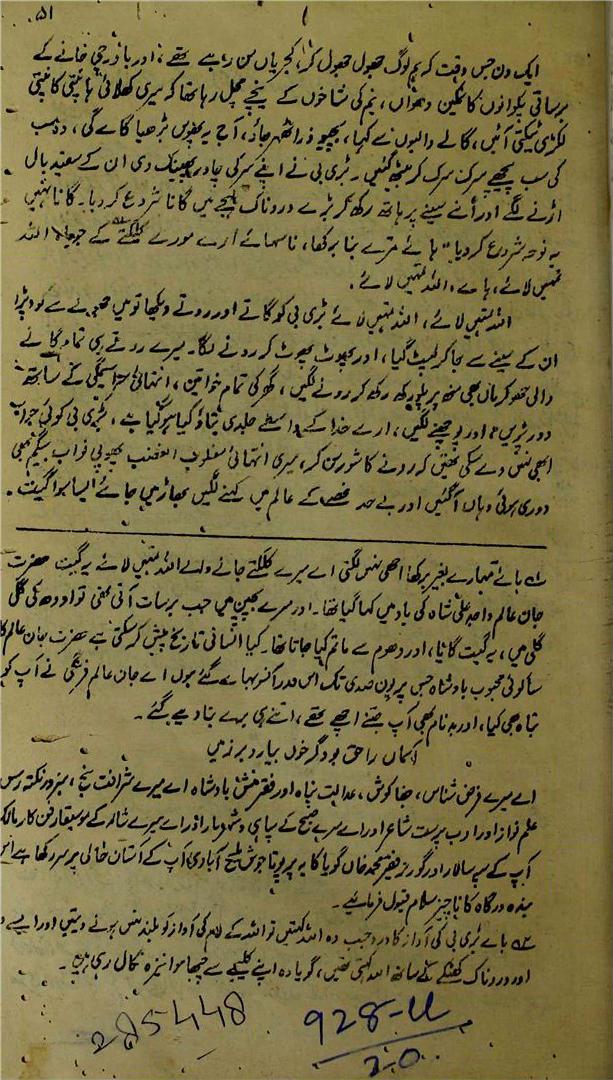 ۵۱
ایک دن جس وقت کہ ہم لوگ جھول جھول کر، کجریاں سن رہے تھے، اور باورچی خانے کے
برساتی پکوانوں کا نمکین دھواں، نیم کی شاخوں کے نیچے مچل رہا تھا کہ میری کھلائی ہانپتی کانپتی
لکڑی ٹیکتی آئیں، گانے والیوں نے کہا، بچیو ذرا ٹھہر جاؤ، آج یہ پھوس بڑھیا گائے گی، وہ سب
کی سب پیچھے سرک سرک کر بیٹھ گئیں۔ بڑی بی نے اپنے سر کی چادر پھینک دی ان کے سفید بال
اڑنے لگے اور اُنے سینے پر ہاتھ رکھ کر بڑے دردناک لہجے میں گانا شروع کر دیا۔ گانا نہیں
یہ نوحہ شروع کر دیا "ہائے تمرے بنا برکھا، نا سہائے ارے مورے کلکتے کے جویّا، اللہ
تمہیں لائے، ہائے، اللہ تمہیں لائے۔
اللہ تمہیں لائے، اللہ تمہیں لائے بڑی بی کو گاتے اور روتے دیکھا تو میں جھولے سے کود پڑا
ان کے سینے سے جا کر لپٹ گیا، اور پھوٹ پھوٹ کر رونے لگا۔ میرے روتے ہی تمام گانے
والی چھوکریاں بھی منھ پر پلو رکھ رکھ کر رونے لگیں، گھر کی تمام خواتین، انتہائی سراسیمگی کے ساتھ
دوڑ پڑیں، اور پوچھنے لگیں، ارے خدا کے واسطے جلدی بتاؤ کیا ہو گیا ہے، بڑی بی کوئی جواب
ابھی نہیں دے سکی تھیں کہ رونے کا شور سن کر، میری انتہائی مغلوب الغضب پھوپی نواب بیگم بھی
دوڑی ہوئی وہاں آ گئیں اور بے حد غصے کے عالم میں کہنے لگیں بھاڑ میں جائے ایسا موا گیت۔
لہ ہائے تمہارے بغیر برکھا اچھی نہیں لگتی اے میرے کلکتے جانے والے اللہ تمہیں لائے یہ گیت حضرت
جان عالم واجد علی شاہ کی یاد میں کہا گیا تھا۔ اور میرے بچپن میں جب برسات آتی تھی تو اودھ کی گلی
گلی میں، یہ گیت گایا، اور دھوم سے ماتم کیا جاتا تھا۔ کیا انسانی تاریخ پیش کر سکتی ہے حضرت جان عالم کا
سا کوئی محبوب بادشاہ جس پر پون صدی تک اس قدر آنسو بہائے گئے ہوں اے جان عالم فرنگی نے آپ کو
تباہ بھی کیا، اور بدنام بھی آپ جتنے اچھے تھے، اتنے ہی برے بنا دیے گئے۔
آسماں را حق بود گر خوں ببارد بر زمیں
اے میرے فرض شناس، جفاکوش، عدالت پناہ اور فقیر منش بادشاہ اے میرے شرافت سنج، ہنرور نکتہ رس
علم نواز اور ادب پرست شاعر اور اے میرے صبح کے سپاہی و شہریار اور اے میرے شام کے موسیقار فن کار مالک
آپ کے سپہ سالار اور گورنر فقیر محمد خاں گویا کا یہ پرپوتا جوش ملیح آبادی آپ کے آستان خالی پر سر رکھا ہے اس
بندہ درگاہ کا ناچیز سلام قبول فرمائیے۔
۲ہ ہائے بڑی بی کی آواز کا درد جب وہ اللہ کہتیں تو اللہ کے لام کی آواز کو بلند نہیں ہونے دیتیں اور ایسے
اور دردناک کھٹکے کے ساتھ اللہ کہتی تھیں، گویا وہ اپنے کلیجے سے چبھا ہوا نیزہ نکال رہی ہیں۔
285448
928-U
20